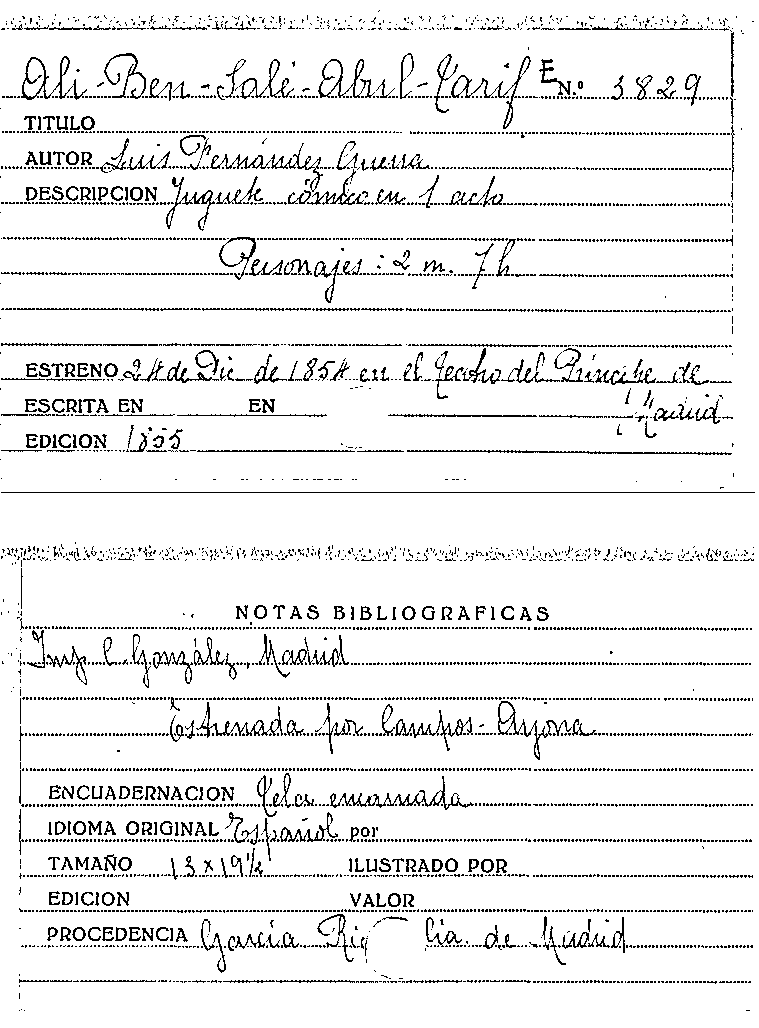 Ali-Ben-Salé-Abul-Tarif E N.º 3829
TITULO
AUTOR Luis Fernández Guerra
DESCRIPCION Juguete cómico en 1 acto
Personajes: 2 m. 7 h.
ESTRENO 24 de Dic de 1854 en el Teatro del Príncipe de
ESCRITA EN EN Madrid
EDICION 1855
NOTAS BIBLIOGRAFICAS
Imp. C. González, Madrid
Estrenada por Campos-Arjona
ENCUADERNACION Tela encarnada
IDIOMA ORIGINAL Español por
TAMAÑO 13 x 19½ ILUSTRADO POR
EDICION VALOR
PROCEDENCIA García Cia. de Madrid